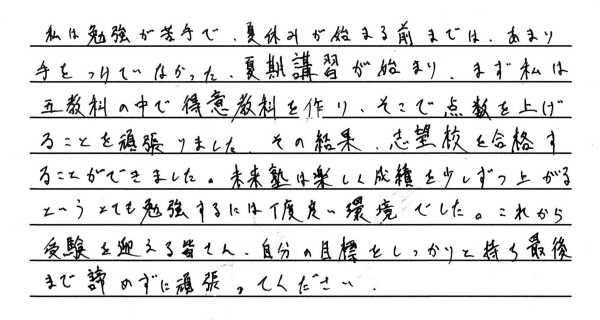 私は勉強が苦手で、夏休みが始まる前までは、あまり
手をつけていなかった、夏期講習が始まり、まず私は
五教科の中で得意教科を作り、そこで点数を上げ
ることを頑張りました、その結果、志望校を合格す
ることができました。未来塾は楽しく成績を少しずつ上がる
というとても勉強するには丁度良い環境でした。これから
受験を迎える皆さん、自分の目標をしっかりと持ち最後
まで諦めずに頑張ってください、